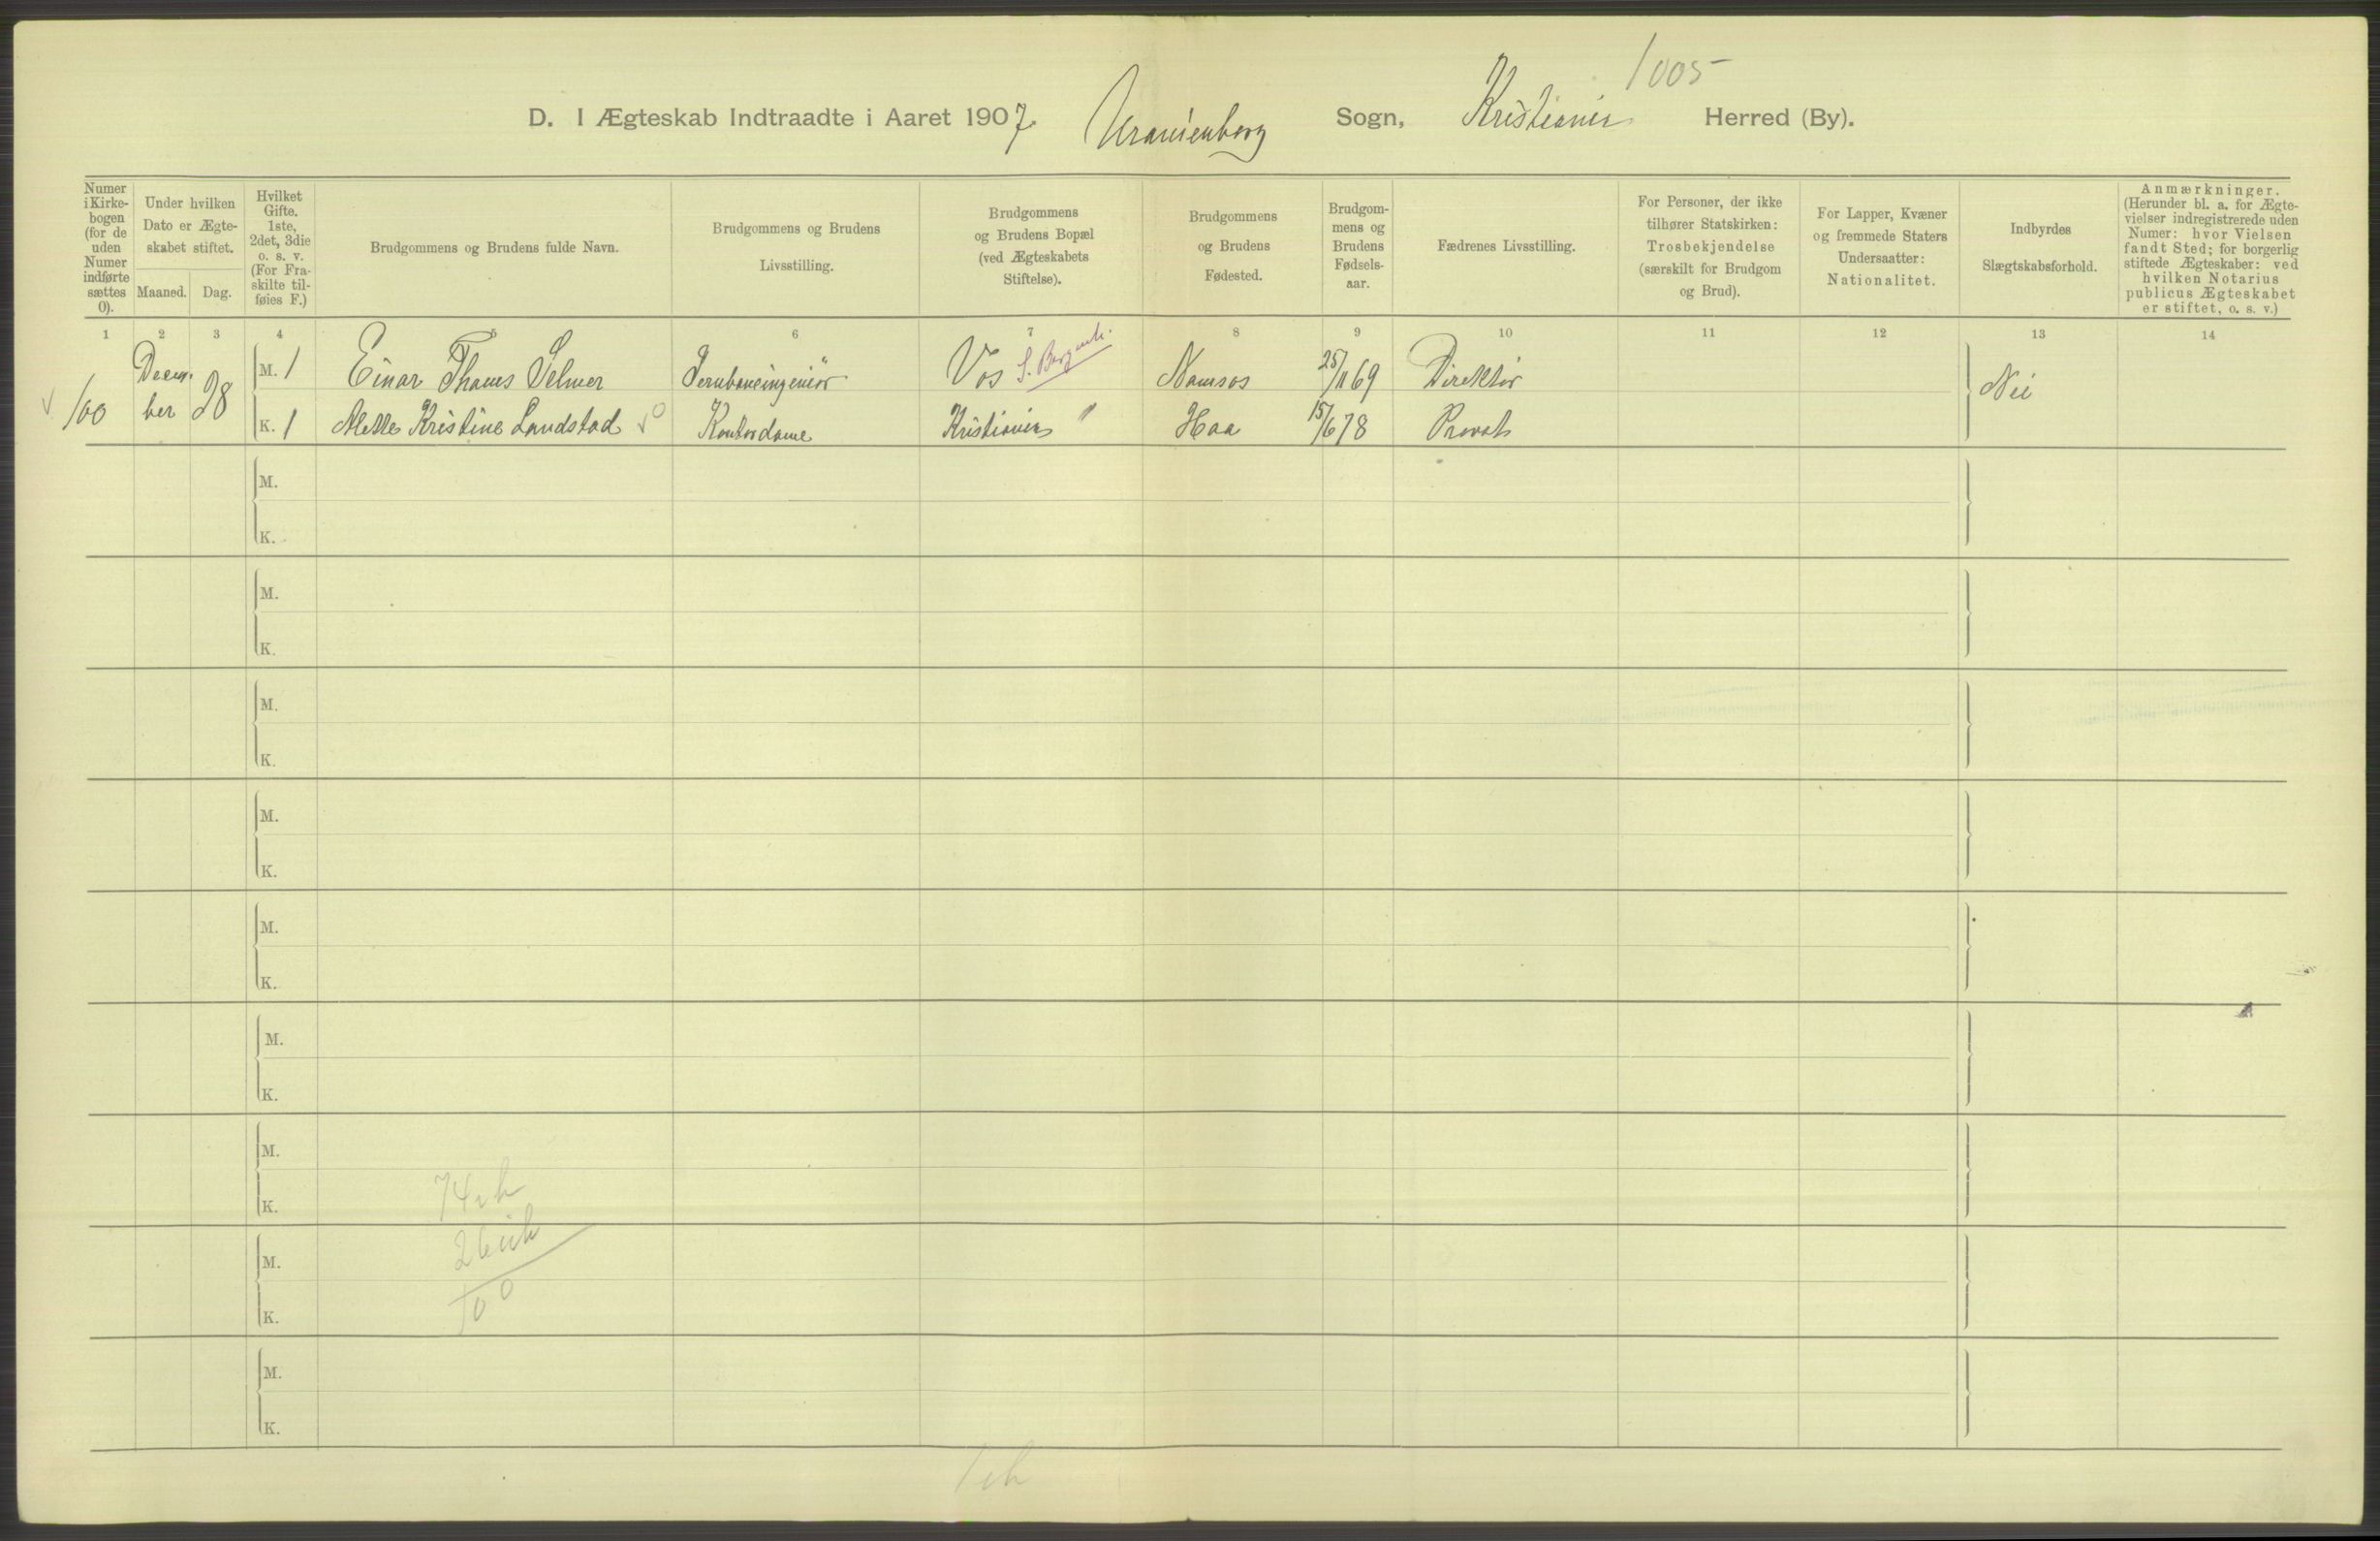 1005
D. I Ægteskab Indtraadte i Aaret 1907. Uranienborg Sogn, Kristiania Herred (By).
Numer i Kirke-bogen (for de uden Numer indførte sættes 0).
Under hvilken Dato er Ægte-skabet stiftet.
Maaned. Dag.
Hvilket Gifte. 1ste, 2det, 3die o. s. v. (For Fra-skilte til-føies F.)
Brudgommens og Brudens fulde Navn.
Brudgommens og Brudens Livsstilling.
Brudgommens og Brudens Bopæl (ved Ægteskabets Stiftelse).
Brudgommens og Brudens Fødested.
Brudgom-mens og Brudens Fødsels-aar.
Fædrenes Livsstilling.
For Personer, der ikke tilhører Statskirken: Trosbekjendelse (særskilt for Brudgom og Brud).
For Lapper, Kvæner og fremmede Staters Undersaatter: Nationalitet.
Indbyrdes Slægtskabsforhold.
Anmærkninger. (Herunder bl. a. for Ægte-vielser indregistrerede uden Numer: hvor Vielsen fandt Sted; for borgerlig stiftede Ægteskaber: ved hvilken Notarius publicus Ægteskabet er stiftet, o. s. v.)
1 2 3 4 5 6 7 8 9 10 11 12 13 14
100 Decem-ber 28
M. 1 Einar Thams Selmer Jernbaneingeniör Vos Namsos 25/11 69 Direktör Nei
K. 1 Mette Kristine Landstad Kontordame Kristiania " Haa 15/6 78 Provst
M.
K.
M.
K.
M.
K.
M.
K.
M.
K.
M.
K.
M.
K.
M.
K.
M.
K.
74
26
100